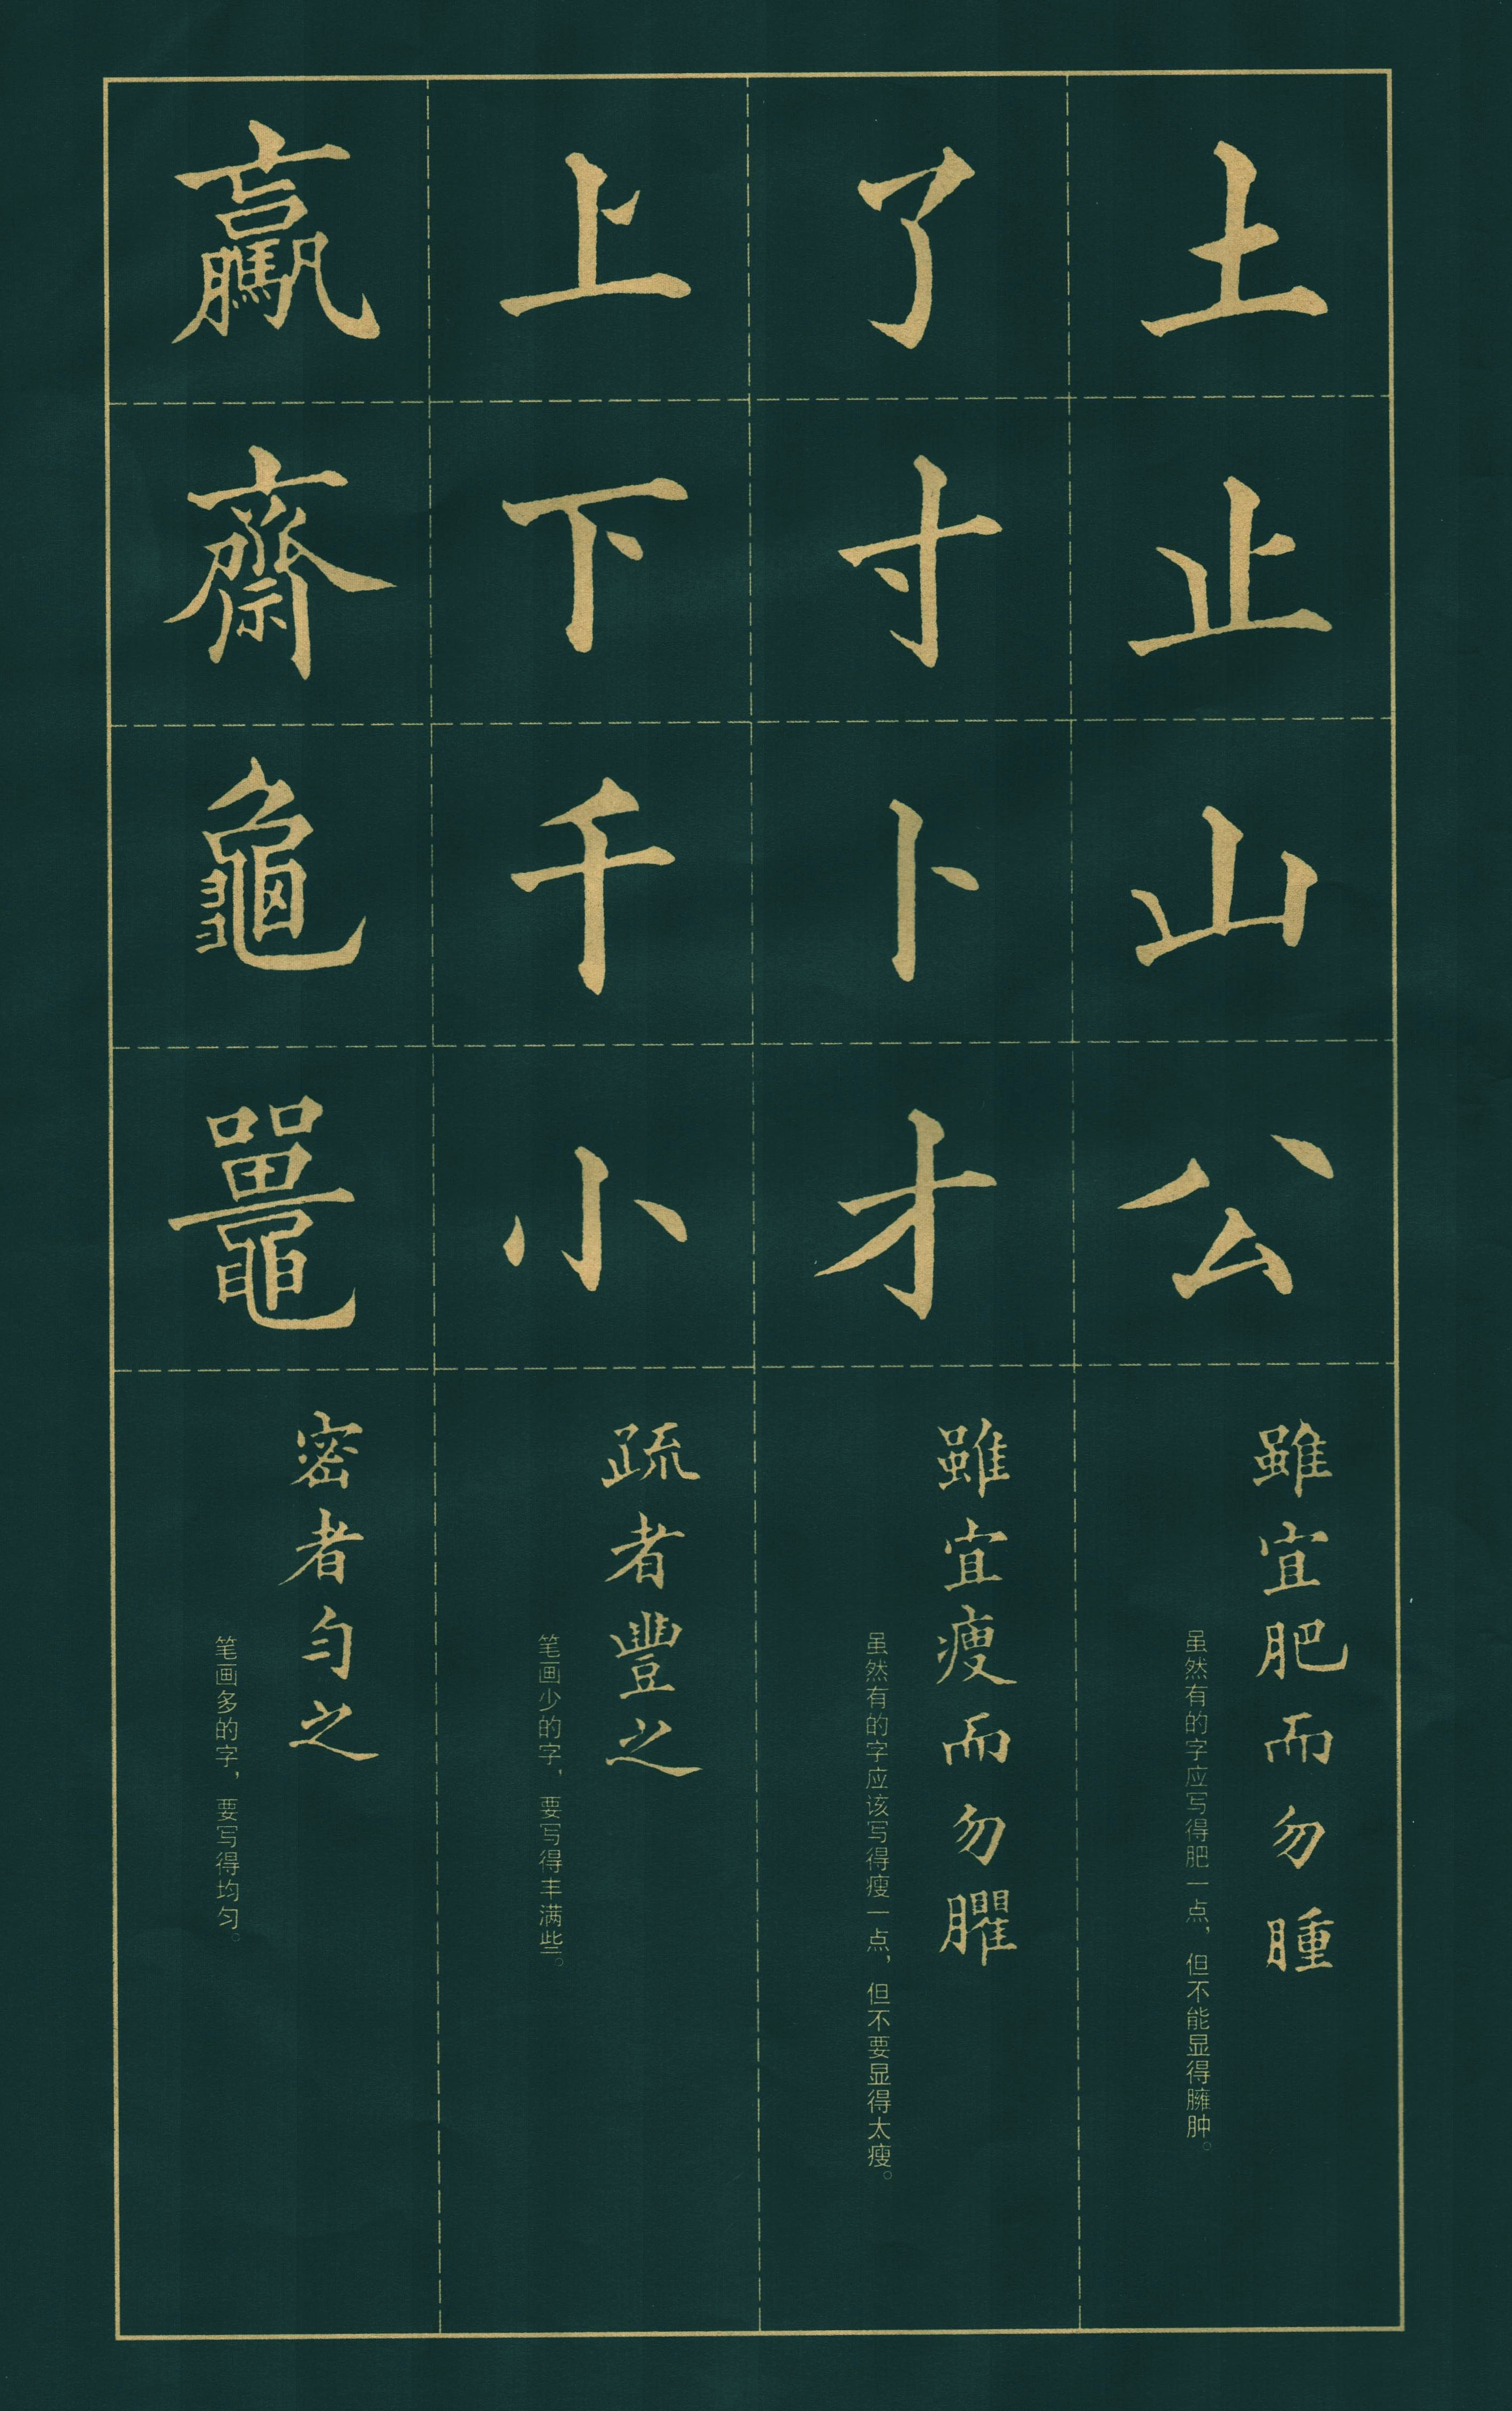 土止山公
雖宜肥而勿腫
虽然有的字应写得肥一点，但不能显得臃肿。
了寸卜才
雖宜瘦而勿臞
虽然有的字应该写得瘦一点，但不要显得太瘦。
上下千小
疏者豐之
笔画少的字，要写得丰满些。
驘齋龜鼉
密者勻之
笔画多的字，要写得均匀。